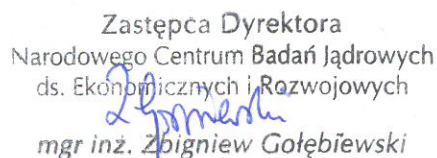 Zastępca Dyrektora
Narodowego Centrum Badań Jądrowych
ds. Ekonomicznych i Rozwojowych
mgr inż. Zbigniew Gołębiewski